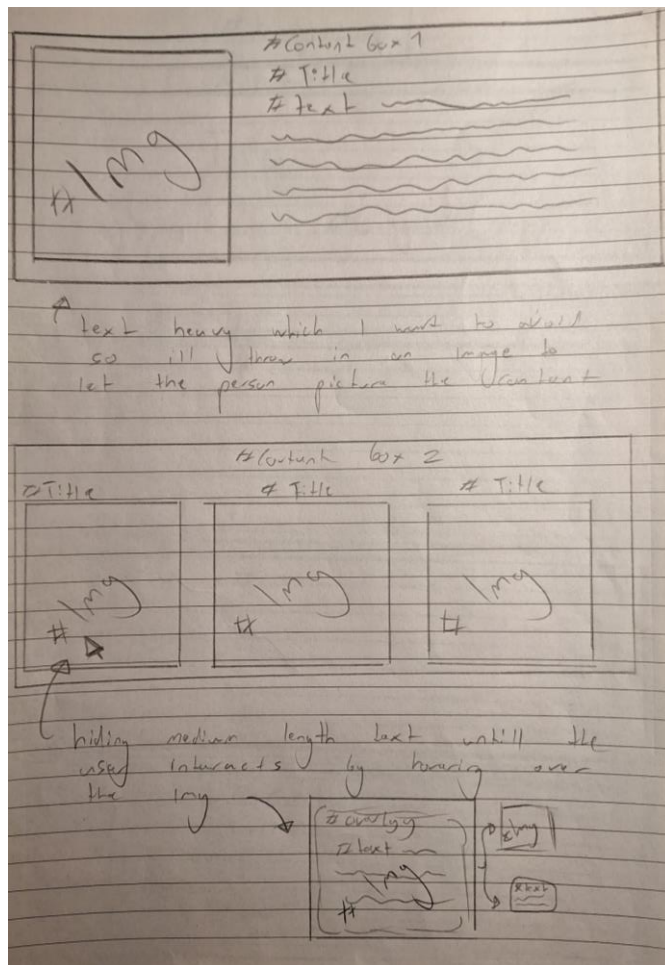 # Content box 1
# Title
# text
# Img
text heavy which I want to avoid
so ill throw in an image to
let the person picture the content
# Content box 2
# Title # Title # Title
# Img # Img # Img
hiding medium length text untill the
user interacts by hovering over
the Img
# overlay
# text
# Img
# Img
# text